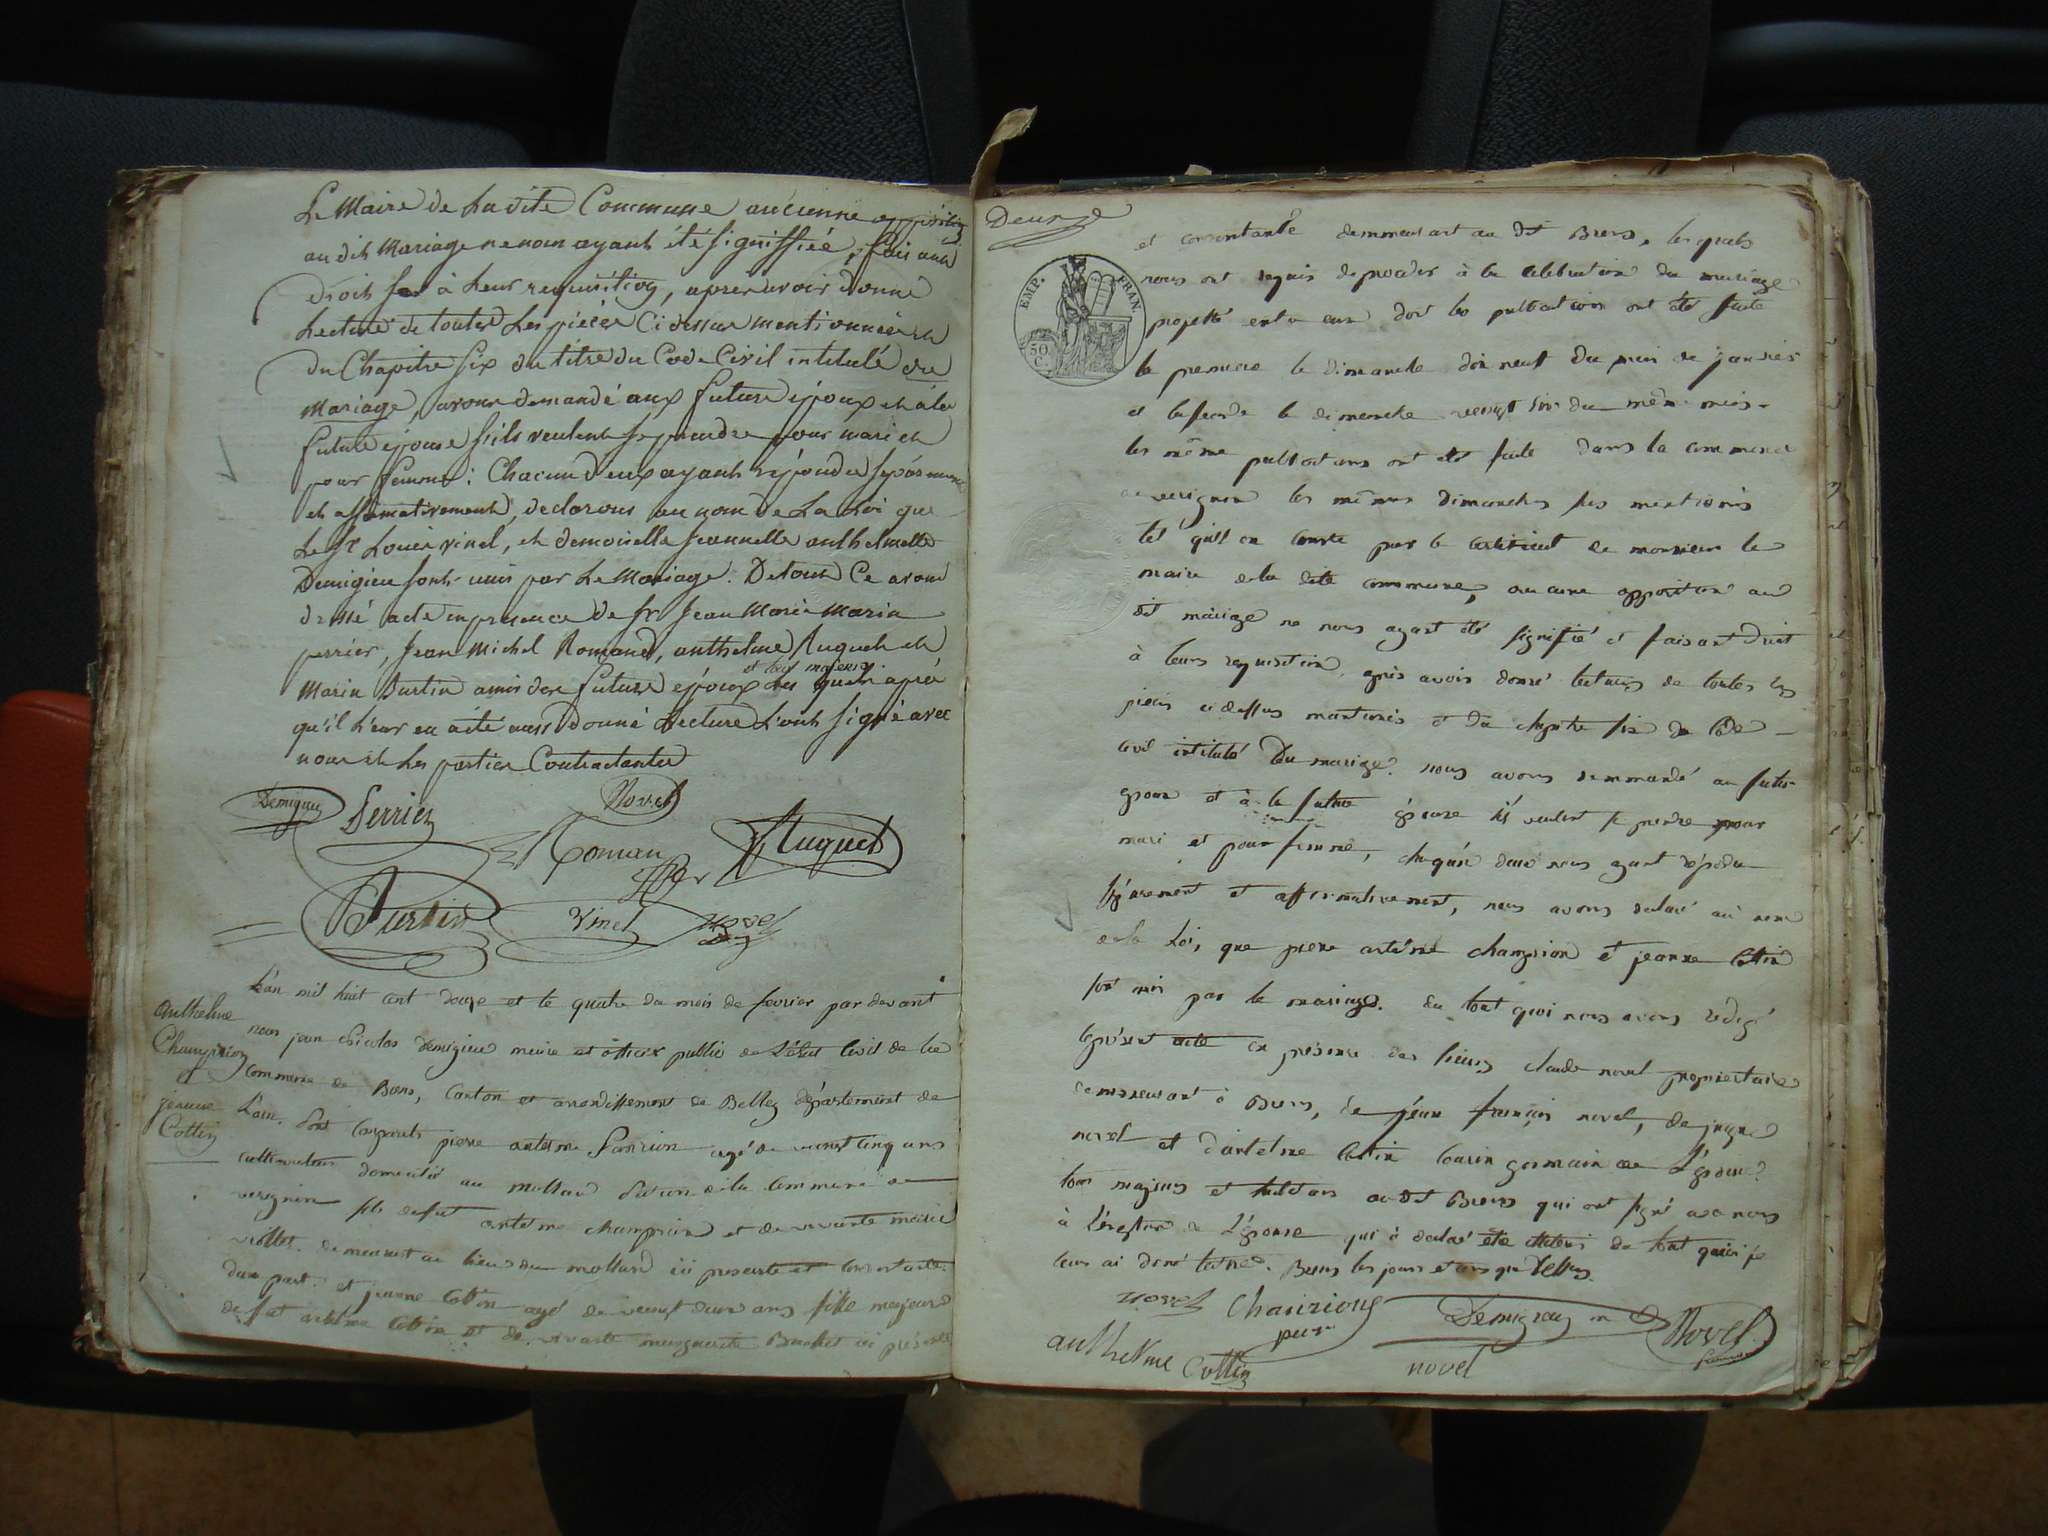 Le Maire de La dite Commune aucienne opposition
au dit Mariage ne nous ayant été signiffiée, fais ant
droit à leur requisition, apres avoir donné
Lecture de toutes Les pièces Ci dessus mentionnées et
du Chapitre six du titre du Code Civil intitulé du
Mariage, avons demandé aux future époux et à la
future épouse s'ils veulent se prendre pour mari et
pour femme : Chacun d'eux ayant répondu séparement
et affirmativement, declarons au nom de La Loi que
Le Sr Louis vinel, et demoiselle Jeannette anthelmette
Demigieu sont unis par Le Mariage. De tout Ce avons
dressé acte en présence de sr Jean Marie Marin
perrier, Jean Michel Romand, anthelme Ruguet et
et tous majeurs
Marin Durtin amis des future époux Les quels après
qu'il Leur en aété aussi donné Lecture L'ont signé avec
nous et Les parties Contractantes
Demigieu Perrier Novel
Roman Ruguet
Durtin Vinel novel
anthelme
Champion
et
jeanne
Cottin
L'an mil huit cent douze et le quatre du mois de fevrier par devant
nous jean Nicolas Demigieu maire et officier public de L'état Civil de la
Commune de Bons, Canton et arrondissement de Belley département de
L'ain. Sont Comparuts pierre antelme Campion agé de vincet cinq ans
cultivateur domicilié au mollard de la Commune de
verignin fils defut antelme champion et de vivante
viollet demeurant au lieu du mollard ici presente et consentante
dune part. et jeanne Cottin agé de vincet deux ans fille majeure
de fut antelme Cottin et de vivante marguerite Brochet ici présente
Deurge
EMP. FRAN.
50
C.
et consentante demmeurant au dit Bons, les quels
nous ont requis de proceder à la celebration du mariage
projetté entre eux dont les publication ont été faite
la premiere le dimanche dix neuf du mois de janvier
et la seconde le dimanche vincet six du même mois.
les même publications ont été faite dans la commune
de verignin les mêmes dimanches sus mentionés
tel quil en conste par le certificat de monsieur le
maire de la dite commune, aucune opposition au
dit mariage ne nous ayant été signifié et faisant droit
à leurs requisition, après avoir donné lectures de toutes les
pieces ci dessus mantionés et du chapitre six du Code
Civil intitulé Du mariage. nous avons demmandé au futur
epoux et à la future épouse s'il veulent se prendre pour
mari et pour femme, chaqu'un deux nous ayant répondu
séparement et affirmativement, nous avons declaré au nom
de la Loi, que pierre antelme champion et jeanne Cottin
sont unis par le mariage. du tout quoi nous avons redigé
le présent acte en présence des sieurs claude novel propriétaire
demmeurant à Bons, de jean françois novel, de
novel et d'antelme Cottin Cousin germain de L'épouse
tous majeurs et habitans audit Bons qui ont signé avec nous
à L'exeption de L'épouse qui à declaré etre illiteré de tout quoi je
leurs ai doné lecture. Bons les jours et ans que dessus.
novel Championg Demigieu m Novel
anthelme Cottin novel